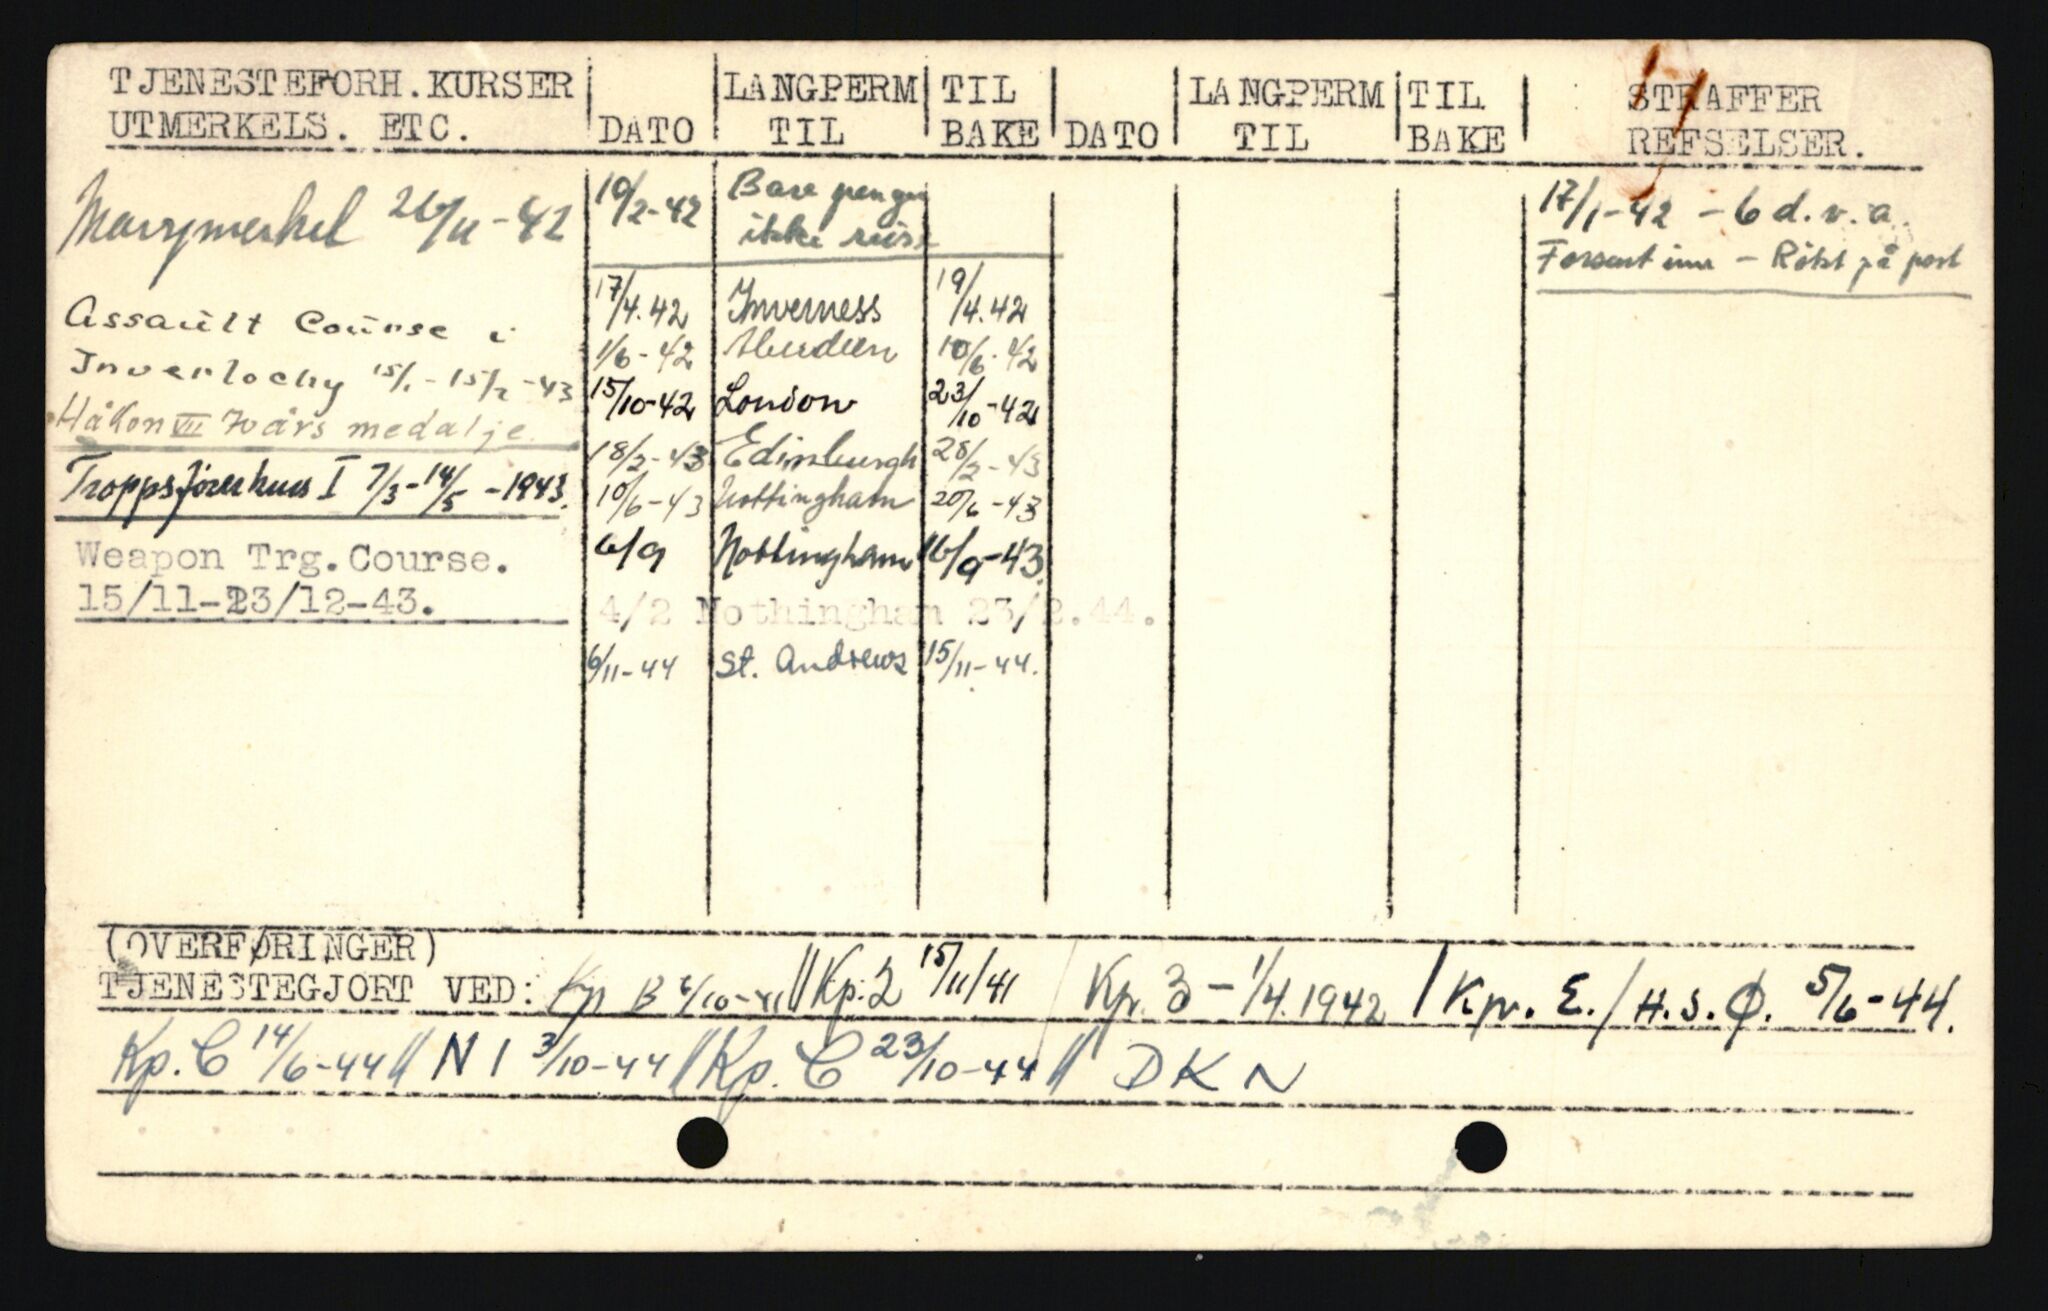 TJENESTEFORH. KURSER
UTMERKELS. ETC.
DATO
LANGPERM
TIL
TIL
BAKE
DATO
LANGPERM
TIL
TIL
BAKE
STRAFFER
REFSELSER.
26/11-42
Assault Course i
Inverlochy 15/1-15/2-43
Håkon VII 70års medalje
Troppsførerkurs I 7/3-14/5-1943.
Weapon Trg. Course.
15/11-23/12-43.
10/2-42 Bare penger
ikke reise
17/4.42 Inverness 19/4.42
1/6-42 Aberdeen 10/6-42
15/10-42 London 23/10-42
18/2-43 Edinburgh 28/2-43
10/6-43 Nottingham 20/6-43
6/9 Nottingham 16/9-43.
4/2 Nothingham 23/2.44.
6/11-44 St. Andrews 15/11-44.
17/1-42 - 6 d.v.a.
Forsent inn - Røkt på post
(OVERFØRINGER)
TJENESTEGJORT VED: Kp B 6/10-41 // Kp. 2 15/11/41 / Kp. 3 - 1/4.1942 / Kp. E. / H.S.Ø. 5/6-44.
Kp. C 14/6-44 // N I 3/10-44 // Kp. C 23/10-44 // DKN